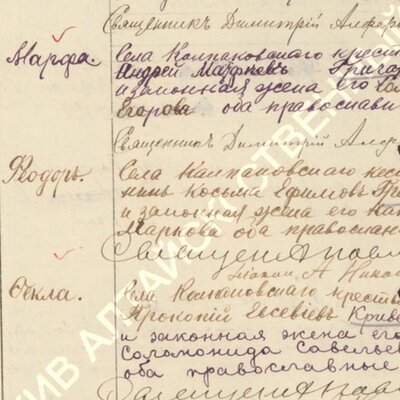 Священникъ Димитрій Алфе
Марфа.
Села Колпаковскаго крест
Андрей Матѳіевъ Григор
и законная жена его
Егорова оба православн
Священникъ Димитрій Алф
Ѳеодоръ.
Села Колпаковскаго
Косьма Ефимовъ
и законная жена его
Маркова оба православн
Священ
Ѳекла.
Села Колпаковскаго кресть
Прокопій Евсевіевъ Криво
и законная жена его
Соломонида Савелье
оба православные
Священ
ИВ АЛТАЙСК
СТВЕННЫЙ